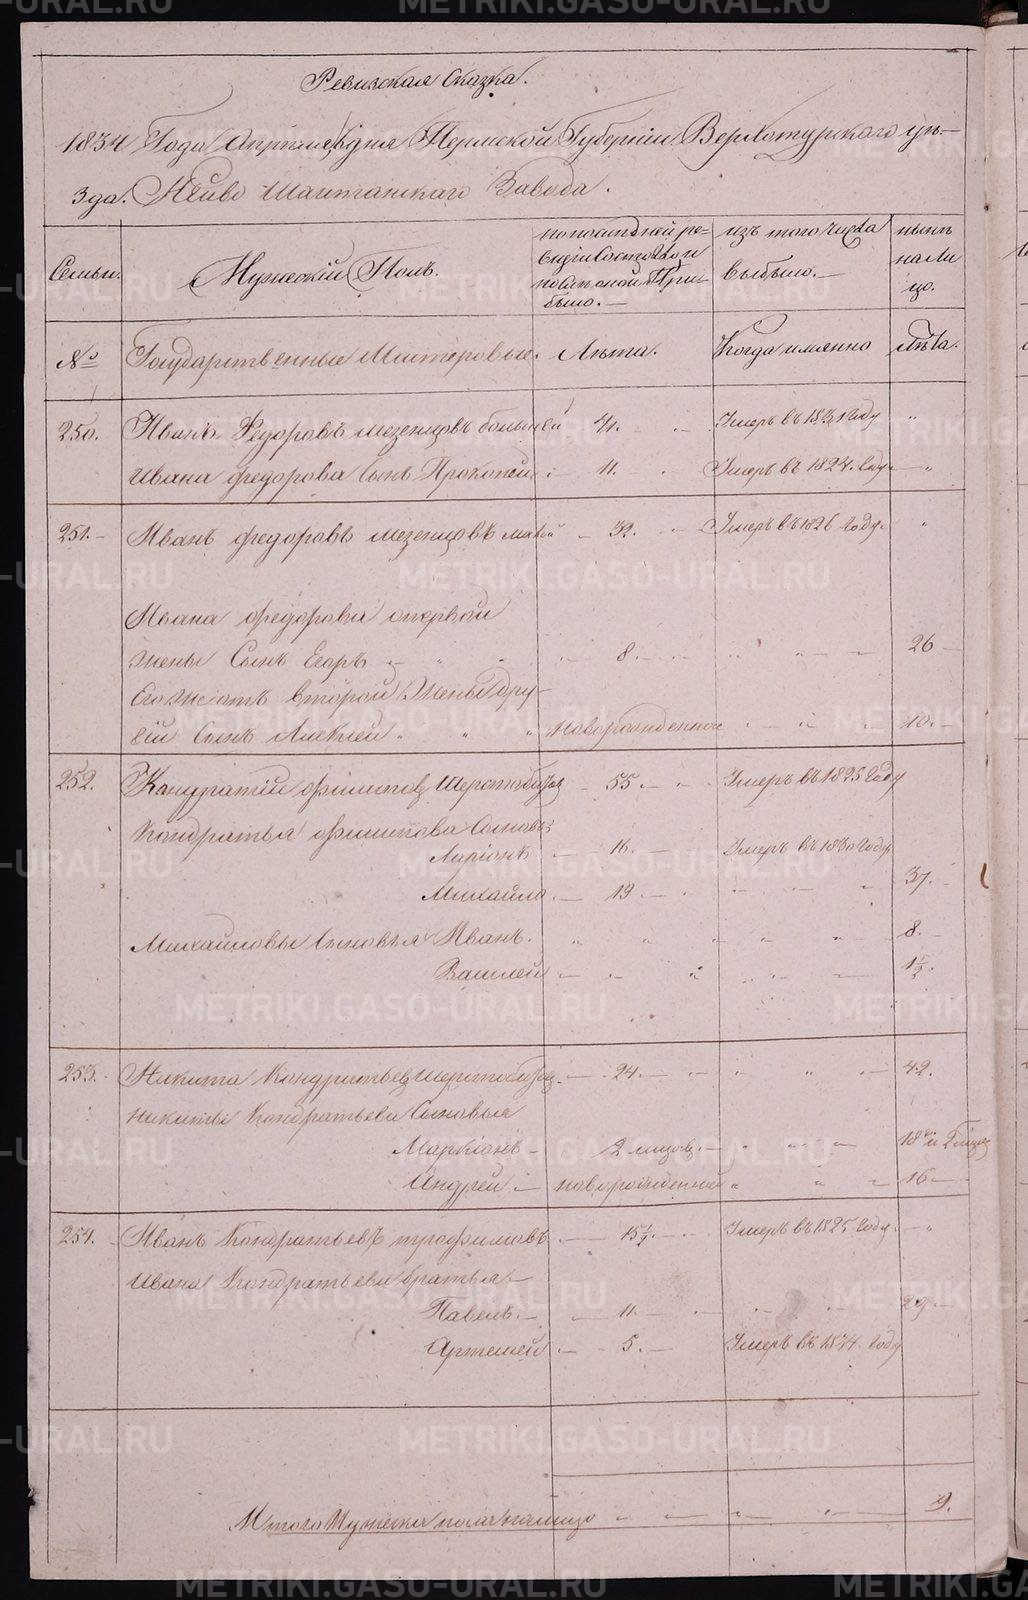 Ревизская Сказка.
1834 Года Апреля дня Пермской Губернии Верхотурскаго уѣ-
зда. Нейво Шайтанскаго Завода.
Семьи. Мужескій Полъ. по последней ре-
визіи Состояло и
после оной При-
было. — изъ того числа
выбыло. — нынѣ
на ли
цо.
№ Государственные Мастеровые. Лѣта. Когда имянно Лѣта.
250. Иванъ Федоровъ Мезенцовъ большей 41. Умеръ въ 1831 Году "
Ивана Федорова Сынъ Прокопей 11. Умеръ въ 1824. Году "
251. Иванъ Федоровъ Мезенцовъ малой 32. Умеръ въ 1826 Году "
Ивана Федорова от первой
жены Сынъ Егоръ 8. 26
Его же отъ второй жены дру-
гой Сынъ Алексей новорожденное 18.
252. Кандратій Филиповъ Шерстобитов 55 Умеръ въ 1825 Году
Кондратья Филипова Сыновья
Ларіонъ 16. Умеръ въ 1830 Году
Михайло 19 37.
Михайловы Сыновья Иванъ. 8.
Василей 1½.
253. Никита Кондратьев Шерстобитов. 24. 42.
Никиты Кондратьева Сыновья
Маркіонъ 2 мѣсяц. 18 и 2 мѣсяц
Андрей новорожденной 16
254. Иванъ Кондратьевъ Трофимовъ 15½ Умеръ въ 1825 Году "
Ивана Кондратьева братья
Павелъ. 11. 29
Артемей 5. Умеръ въ 1824 Году
Итого Мужеска пола налицо 9.
METRIKI.GASO-URAL.RU